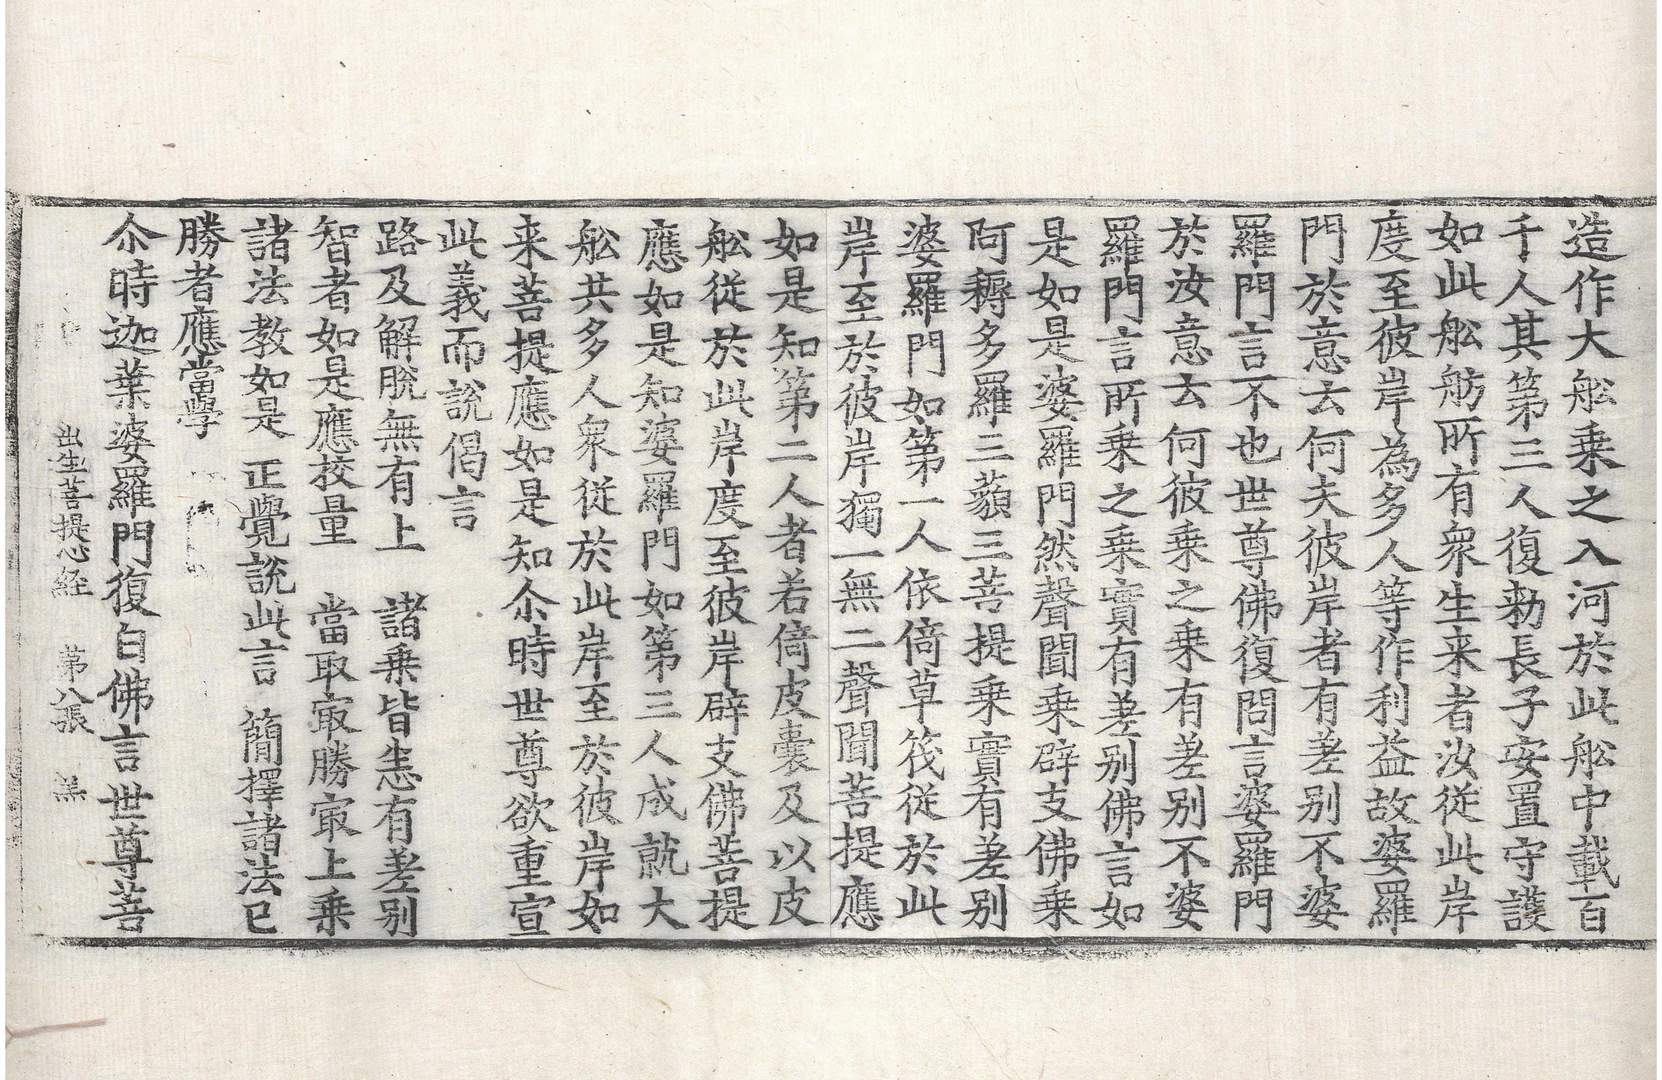 造作大舩乗之入河於此舩中載百
千人其第三人復勑長子安置守護
如此舩舫所有衆生来者汝従此岸
度至彼岸為多人等作利益故婆羅
門於意去何夫彼岸者有差别不婆
羅門言不也世尊佛復問言婆羅門
於汝意去何彼乗之乗有差别不婆
羅門言所乗之乗實有差别佛言如
是如是婆羅門然聲聞乗辟支佛乗
阿耨多羅三藐三菩提乗實有差别
婆羅門如第一人依倚草筏従於此
岸至於彼岸獨一無二聲聞菩提應
如是知第二人者若倚皮囊及以皮
舩従於此岸度至彼岸辟支佛菩提
應如是知婆羅門如第三人成就大
舩共多人衆従於此岸至於彼岸如
来菩提應如是知尒時世尊欲重宣
此義而說偈言
路及解脫無有上　諸乗皆悉有差别
智者如是應校量　當取㝡勝㝡上乗
諸法教如是　正覺說此言　簡擇諸法已
勝者應當學
尒時迦葉婆羅門復白佛言世尊菩
出生菩提心経　第八張　羔